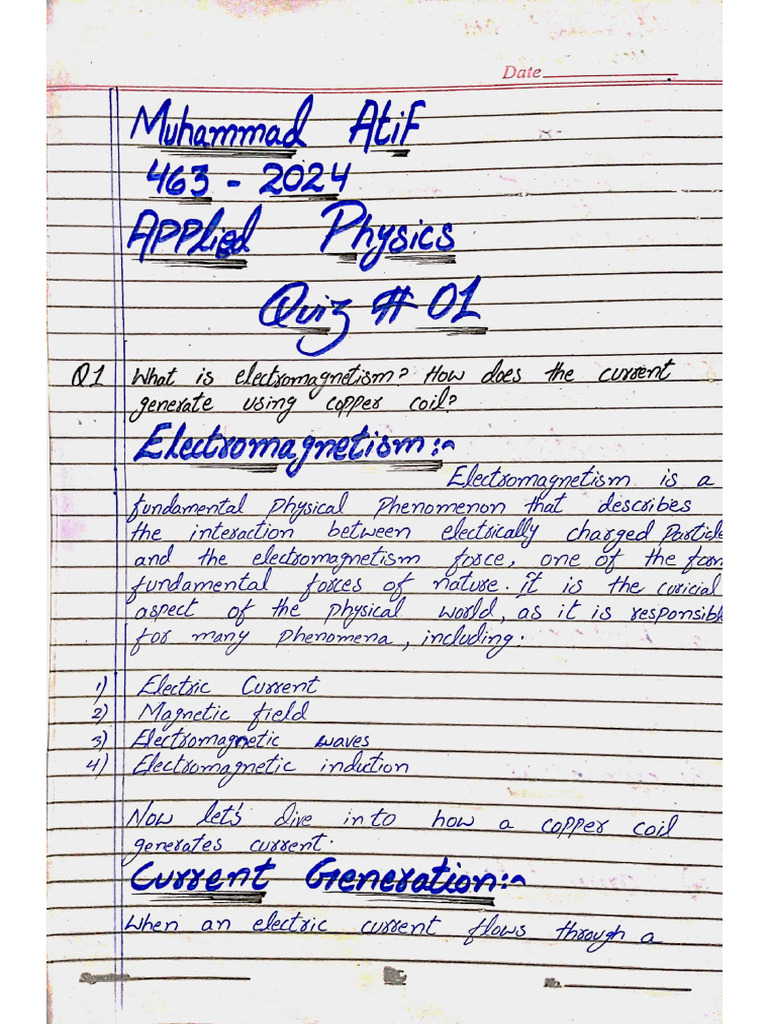 Date
Muhammad Atif
463 - 2024
Applied Physics
Quiz # 01
Q1 What is electromagnetism? How does the current
generate using copper coil?
Electromagnetism:-
Electromagnetism is a
fundamental Physical Phenomenon that describes
the interaction between electrically charged Particle
and the electromagnetism force, one of the
fundamental forces of nature. it is the curicial
aspect of the physical world, as it is responsib
for many phenomena, including:
1) Electric Current
2) Magnetic field
3) Electromagnetic waves
4) Electromagnetic indution
Now let's dive into how a copper coil
generates current.
Current Generation:-
When an electric current flows through a
Signature No.